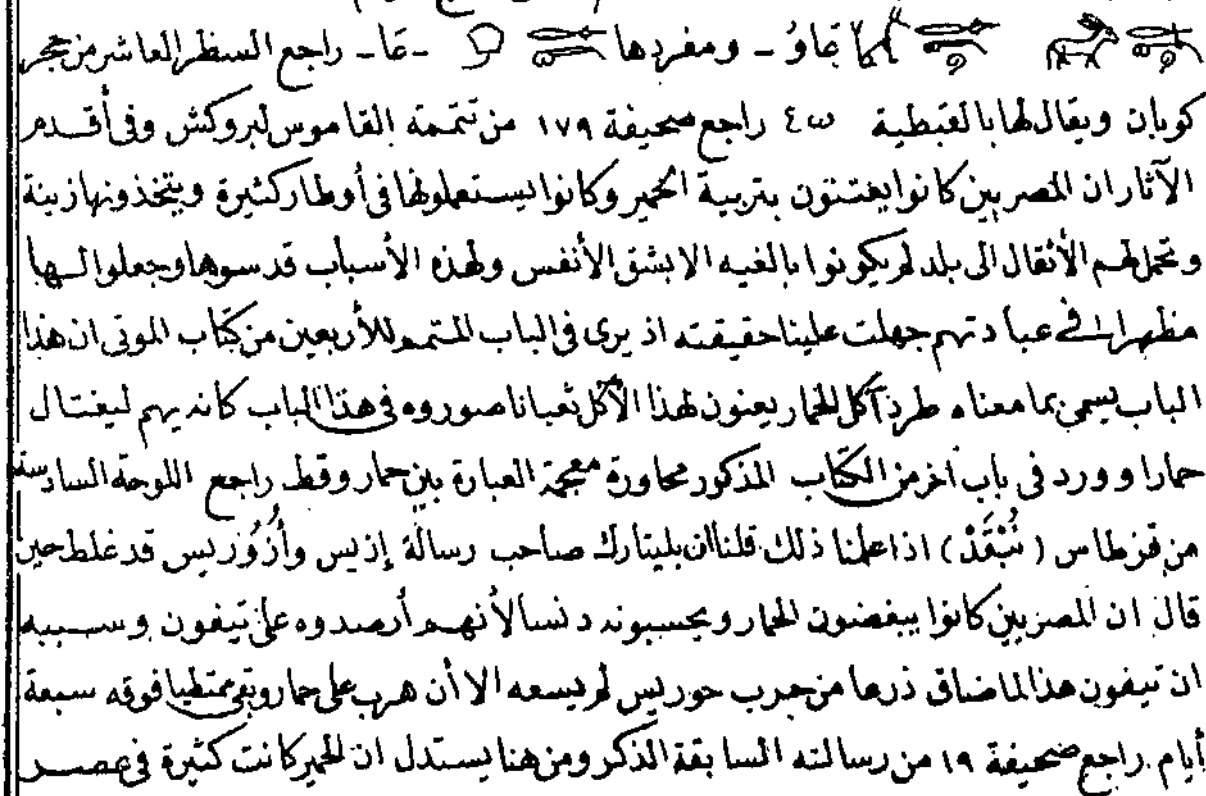 عَاوُ - ومفردها - عَا - راجع السطر العاشر من حجر
كوبان ويقال لها بالقبطية εω راجع صحيفة ١٧٩ من تتمة القاموس لبروكش وفى أقدم
الآثار ان المصريين كانوا يعتنون بتربية الحمير وكانوا يستعملونها فى أوطار كثيرة ويتخذونها زينة
وتحمل لهم الأثقال الى بلد لم يكونوا بالغيه الا بشق الأنفس ولهذه الأسباب قدسوها وجعلوا لها
مظهرا فى عبادتهم جهلت علينا حقيقته اذ يرى فى الباب المتمم للأربعين من كتاب الموتى ان هذا
الباب يسمى بما معناه طرد آكل الحمار يعنون لهذا الآكل ثعبانا صوروه فى هذا الباب كانه يهم ليغتال
حمارا وورد فى باب آخر من الكتاب المذكور محاورة معجمة العبارة بين حمار وقط راجع اللوحة السادسة
من قرطاس (نُبْقَدْ) اذا علمنا ذلك قلنا ان بليتارك صاحب رسالة إزيس وأُزُوريس قد غلط حين
قال ان المصريين كانوا يبغضون الحمار ويحسبونه دنسا لأنهم أرصدوه على تيفون وسببه
ان تيفون هذا لما ضاق ذرعا من حرب حوريس لم يسعه الا أن هرب على حمار وبقى ممتطيا فوقه سبعة
أيام راجع صحيفة ١٩ من رسالته السابقة الذكر ومن هنا يستدل ان الحمير كانت كثيرة فى عصر